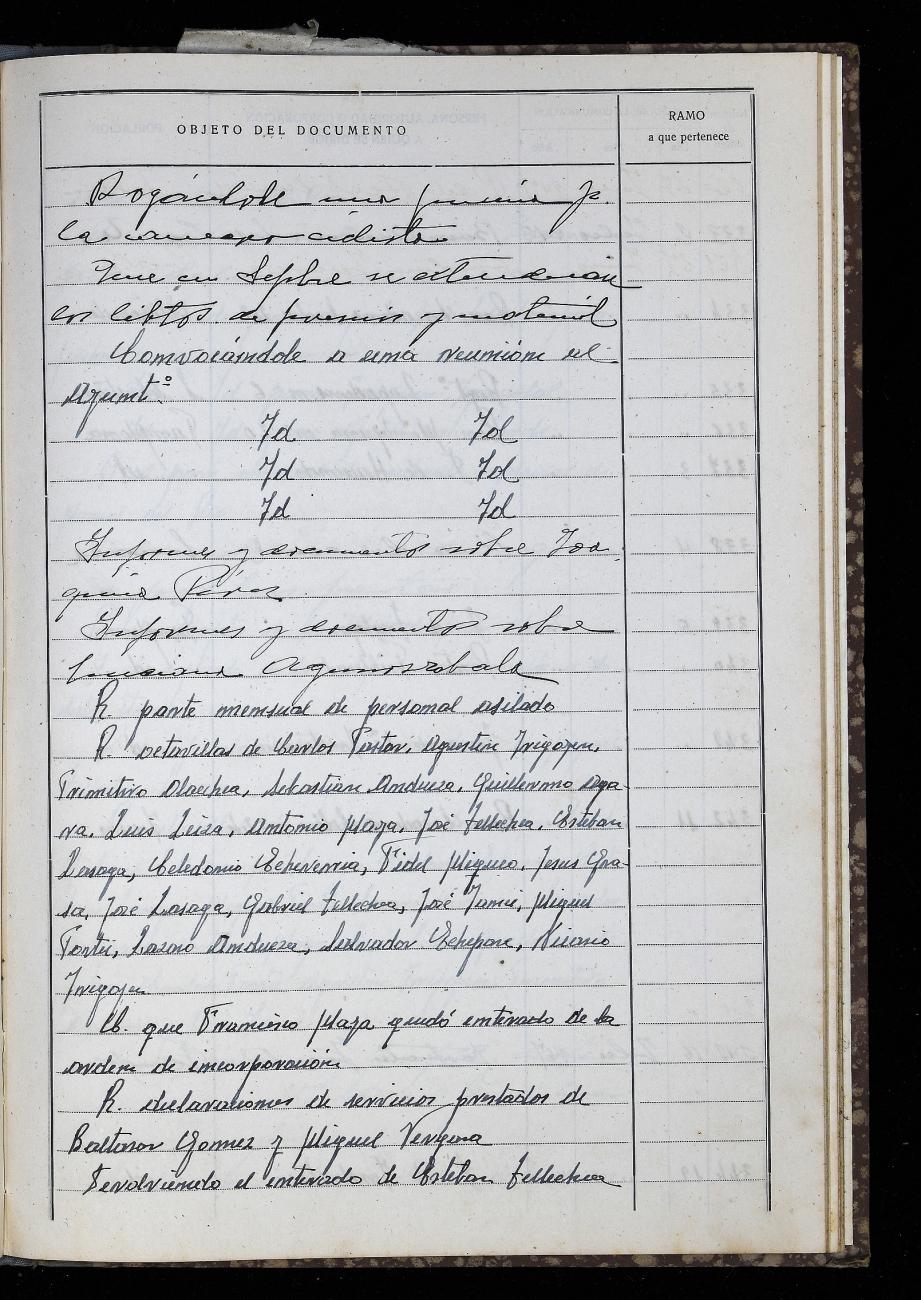 OBJETO DEL DOCUMENTO
RAMO
a que pertenece
Rogándole una p.
la carrera ciclista
Que en Sepbre se extenderán
los libtos. de y material
Convocándole a una reunión al
Ayumtº.
Id Id
Id Id
Id Id
Informes y documentos sobre Joa
quin Pérez
Informes y documentos sobre
R parte mensual de personal asilado
R octavillas de Carlos Pastor, Agustin Irigoyen,
Primitivo Olaechea, Sebastián Andueza, Guillermo Aya-
ra, Luis Leiza, Antonio Plaza, José Tellechea, Esteban
Lasaga, Celedonio Echeverria, Fidel Migueo, Jesus Gra-
sa, José Lasaga, Gabriel Tellechea, José Miguel
Lazaro Andueza, Salvador Echepare, Nicasio
Irigoyen
C. que Francisco Plaza quedó enterado de la
orden de incorporación
R. declaraciones de servicios prestados de
Baltasar Gomez y Miguel Vergara
Devolviendo el enterado de Esteban Tellechea